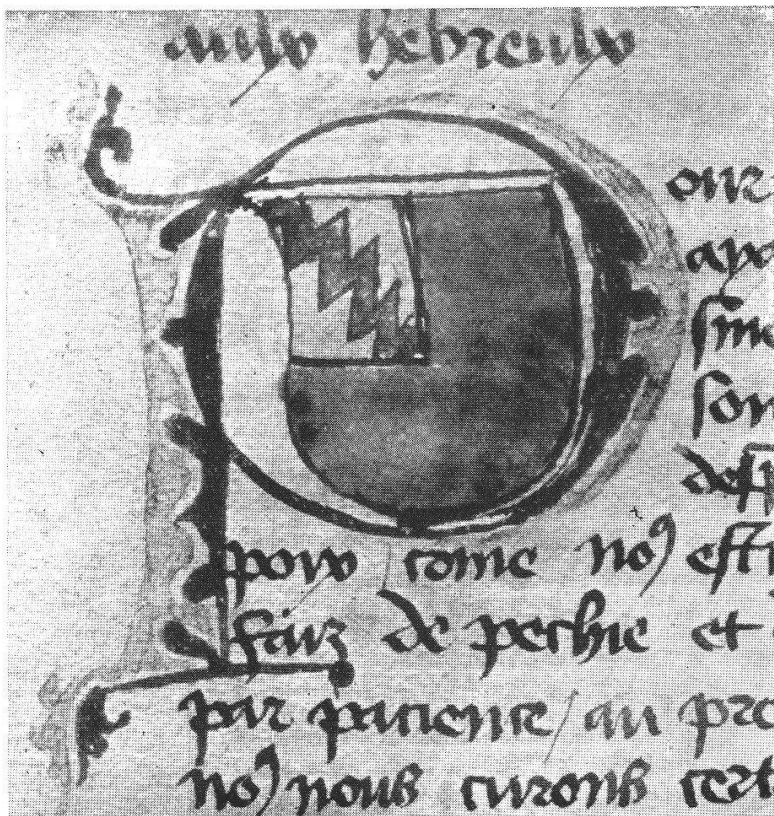 aulx hebreulx
Pour
aya
sine
son
desp
poix come no⁹ esti
faiz de pechie et
par pacience / au pro
no⁹ nous curons cert